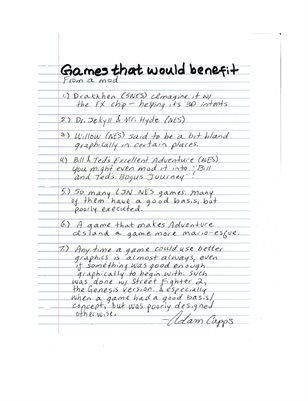 Games that would benefit
From a mod
1.) Drakkhen (SNES) reimagine it w/
the FX chip - helping its 3D intents
2.) Dr. Jekyll & Mr. Hyde (NES)
3.) Willow (NES) said to be a bit bland
graphically in certain places.
4.) Bill & Ted's Excellent Adventure (NES)
you might even mod it into "Bill
and Teds Bogus Journey"!
5.) So many LJN NES games. Many
of them have a good basis, but
poorly executed.
6.) A game that makes Adventure
Island a game more mario-esque.
7.) Any time a game could use better
graphics is almost always, even
if something was good enough
graphically to begin with. Such
was done w/ Street Fighter 2,
the Genesis version. & especially
when a game had a good basis/
concept, but was poorly designed
otherwise.
-Adam Capps